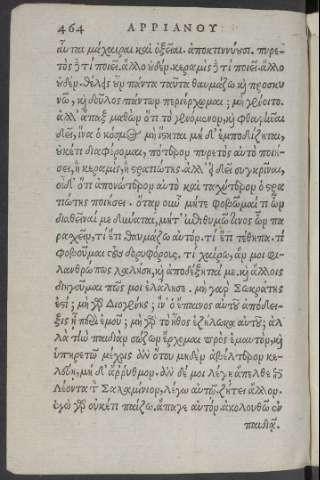 464 ΑΡΡΙΑΝΟΥ
αὗται μάχαιραι καὶ ὀξεῖαι. ἀποκτιννύουσι. πυρε-
τὸς ὃ τί ποιεῖ. ἄλλο οὐδέν. κεραμὶς ὃ τί ποιεῖ. ἄλλο
οὐδέν. θέλεις οὖν πάντα ταῦτα θαυμάζω καὶ προσκυ
νῶ, καὶ δοῦλος πάντων περιέρχωμαι; μὴ γένοιτο.
ἀλλ' ἅπαξ μαθὼν ὅτι τὸ γενόμενον, καὶ φθαρῆναι
δεῖ, ἵνα ὁ κόσμος μὴ ἵστηται μὴ δ' ἐμποδίζηται,
οὐκέτι διαφέρομαι, πότερον πυρετὸς αὐτὸ ποιή-
σει, ἢ κεραμὶς, ἢ στρατιώτης. ἀλλ' εἰ δεῖ συγκρῖναι,
οἶδ' ὅτι ἀπονώτερον αὐτὸ καὶ ταχύτερον ὁ στρα
τιώτης ποιήσει. ὅταν οὖν μήτε φοβῶμαί τι ὧν
διαθεῖναί με δύναται, μήτ' ἐπιθυμῶ τινος ὧν πα
ρασχεῖν, τί ἔτι θαυμάζω αὐτόν. τί ἔτι τέθηπα. τί
φοβοῦμαι τοὺς δορυφόρους, τί χαίρω, ἄν μοι φι-
λανθρώπως λαλήσῃ, καὶ ἀποδέξηταί με. καὶ ἄλλοις
διηγοῦμαι πῶς μοι ἐλάλησε. μὴ γὰρ Σωκράτης
ἐστί; μὴ γὰρ Διογένης; ἵν' ὁ ἔπαινος αὐτοῦ ἀπόδει-
ξις ᾖ περὶ ἐμοῦ; μὴ γὰρ τὸ ἦθος ἐζήλωκα αὐτοῦ; ἀλ
λὰ τὴν παιδιὰν σώζων ἔρχομαι πρὸς ἐμαυτόν, καὶ
ὑπηρετῶ μέχρις ἂν ὅτου μηδὲν ἀβέλτερον κε-
λεύῃ, μὴ δ' ἄρρυθμον. ἂν δέ μοι λέγῃ ἄπελθε ἐπὶ
Λέοντα τὸν Σαλαμίνιον, λέγω αὐτῷ. ζήτει ἄλλον.
ἐγὼ γὰρ οὐκέτι παίζω. ἄπαγε αὐτόν. ἀκολουθῶ ἐν
παιδιᾷ.